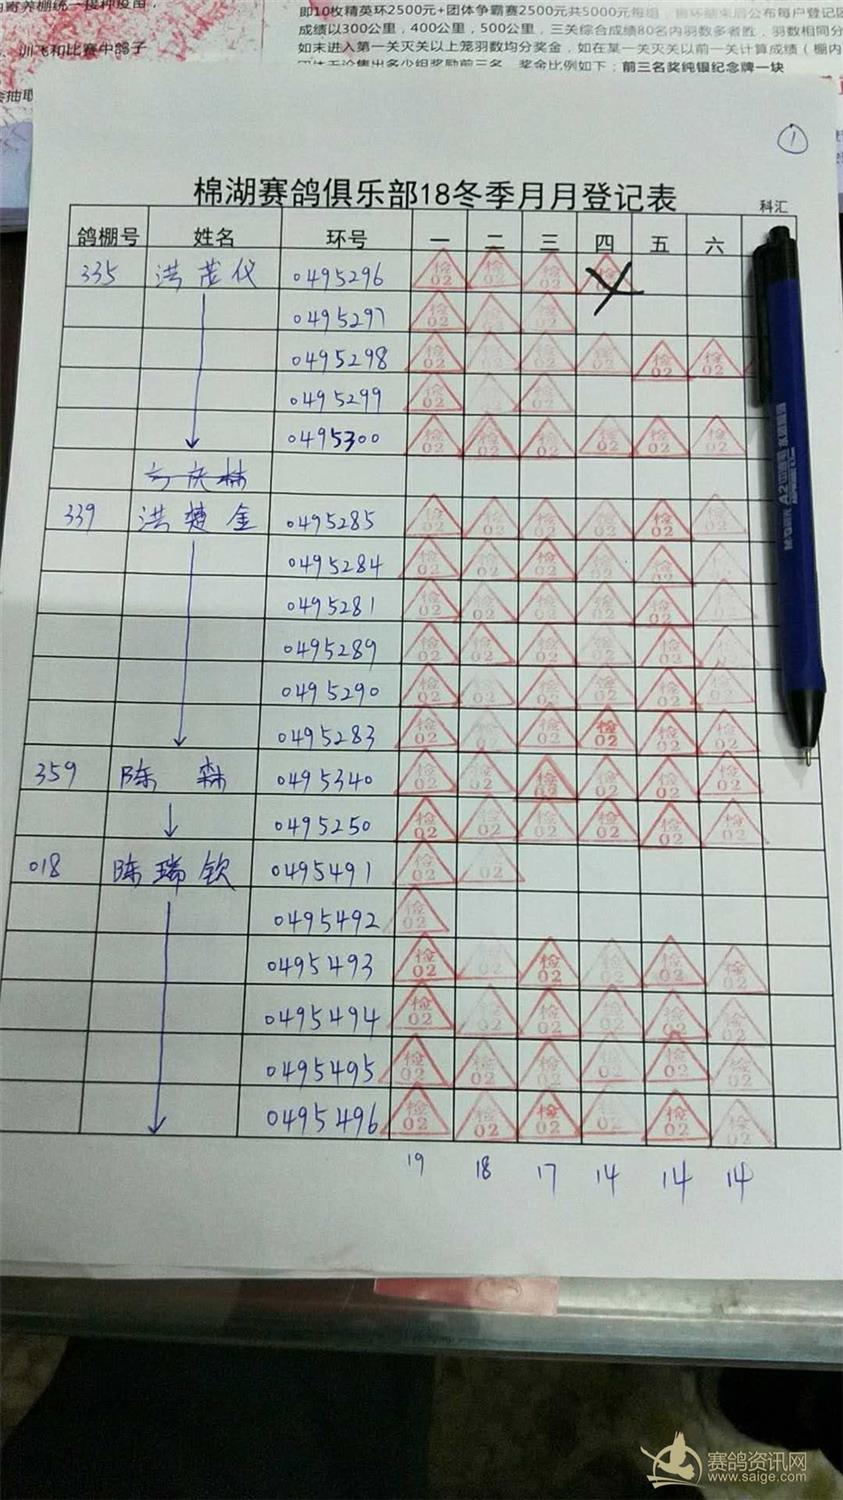 即10枚精英环2500元+团体争霸赛2500元共5000元每组
成绩以300公里，400公里，500公里，三关综合成绩80名内羽数多者胜，羽数相同分
训飞和比赛中鸽子
如未进入第一关灭关以上笼羽数均分奖金，如在某一关灭关以前一关计算成绩（棚内
前三名奖纯银纪念牌一块
1
棉湖赛鸽俱乐部18冬季月月登记表
科汇
鸽棚号 姓名 环号 一 二 三 四 五 六
335 洪茂仪 0495296 检02 检02 检02 检02
0495297 检02 检02 检02
0495298 检02 检02 检02 检02 检02 检02
0495299 检02 检02 检02
0495300 检02 检02 检02 检02 检02 检02
339 洪楚金 0495285 检02 检02 检02 检02 检02 检02
0495284 检02 检02 检02 检02 检02 检02
0495281 检02 检02 检02 检02 检02 检02
0495289 检02 检02 检02 检02 检02 检02
0495290 检02 检02 检02 检02 检02 检02
0495283 检02 检02 检02 检02 检02 检02
359 陈森 0495340 检02 检02 检02 检02 检02 检02
0495250 检02 检02 检02 检02 检02 检02
018 陈瑞钦 0495491 检02 检02
0495492 检02
0495493 检02 检02 检02 检02 检02 检02
0495494 检02 检02 检02 检02 检02 检02
0495495 检02 检02 检02 检02 检02 检02
0495496 检02 检02 检02 检02 检02 检02
19 18 17 14 14 14
赛鸽资讯网
www.saige.com